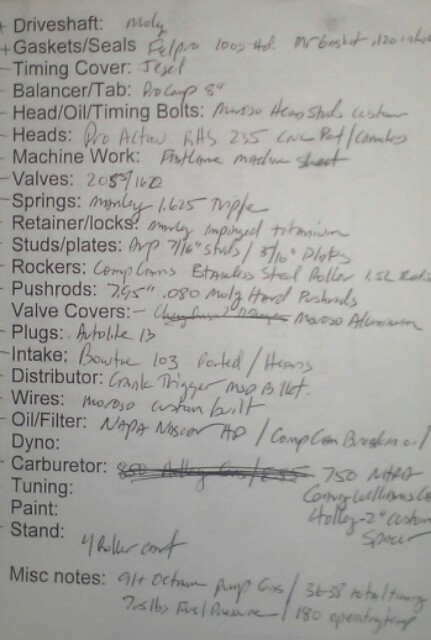 + Driveshaft: Moly
+ Gaskets/Seals Felpro 1005 Hd. Mr Gasket .120
- Timing Cover: Jesel
- Balancer/Tab: ProComp 8"
- Head/Oil/Timing Bolts: Moroso Head Studs custom
- Heads: Pro Action RHS 235 CNC Port/
Machine Work: machine sheet
- Valves: 2055/160
- Springs: Manley 1.625 Triple
- Retainer/locks: Manley titanium
- Studs/plates: Arp 7/16" Studs / 5/16" Plates
Rockers: Comp Cams Stainless Steel Roller 1.52 Ratio
- Pushrods: 7.95" .080 Moly Hard Pushrods
Valve Covers: - Moroso Aluminum
- Plugs: Autolite 13
- Intake: Bowtie 103 Ported /
- Distributor: Crank Trigger MSD Billet.
- Wires: Moroso custom built
- Oil/Filter: NAPA HP / Comp Cam Breakin oil /
Dyno:
- Carburetor: 750 NHRA
Tuning: Williams
Paint: Holley - 2" custom
- Stand: Spacer
4 Roller cart
Misc notes: 91+ Octane Pump Gas / 36-38 total timing
7.5 lbs Fuel Pressure / 180 operating temp